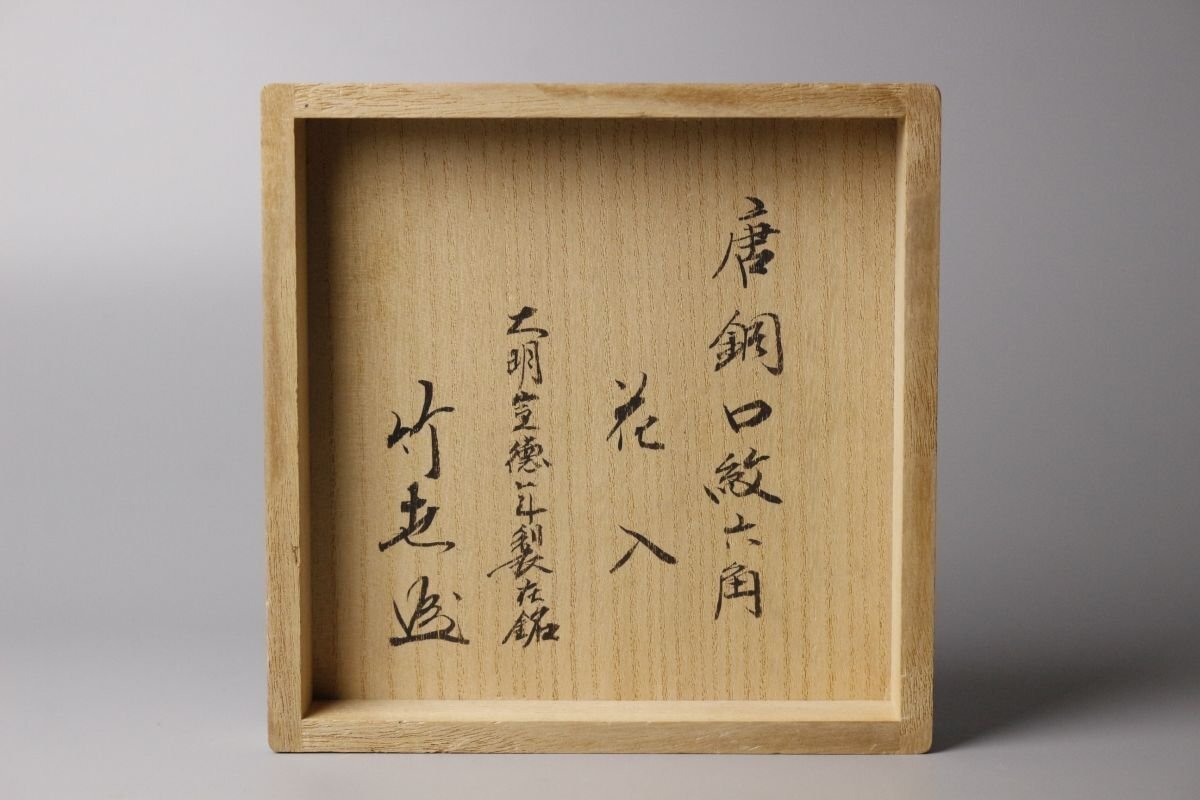 唐銅口紋六角
花入
大明宣德年製在銘
竹